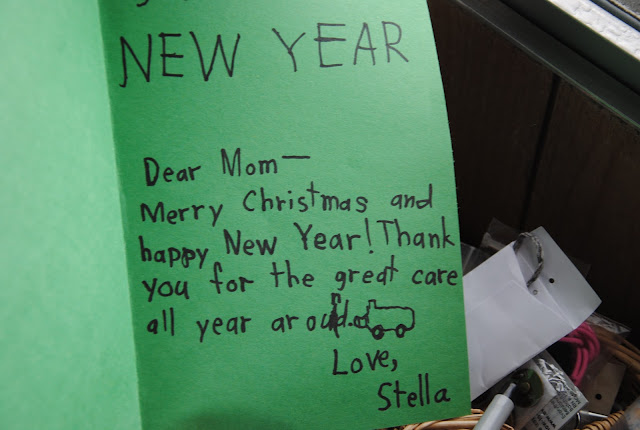 NEW YEAR
Dear Mom—
Merry Christmas and
happy New Year! Thank
you for the great care
all year around.
Love,
Stella